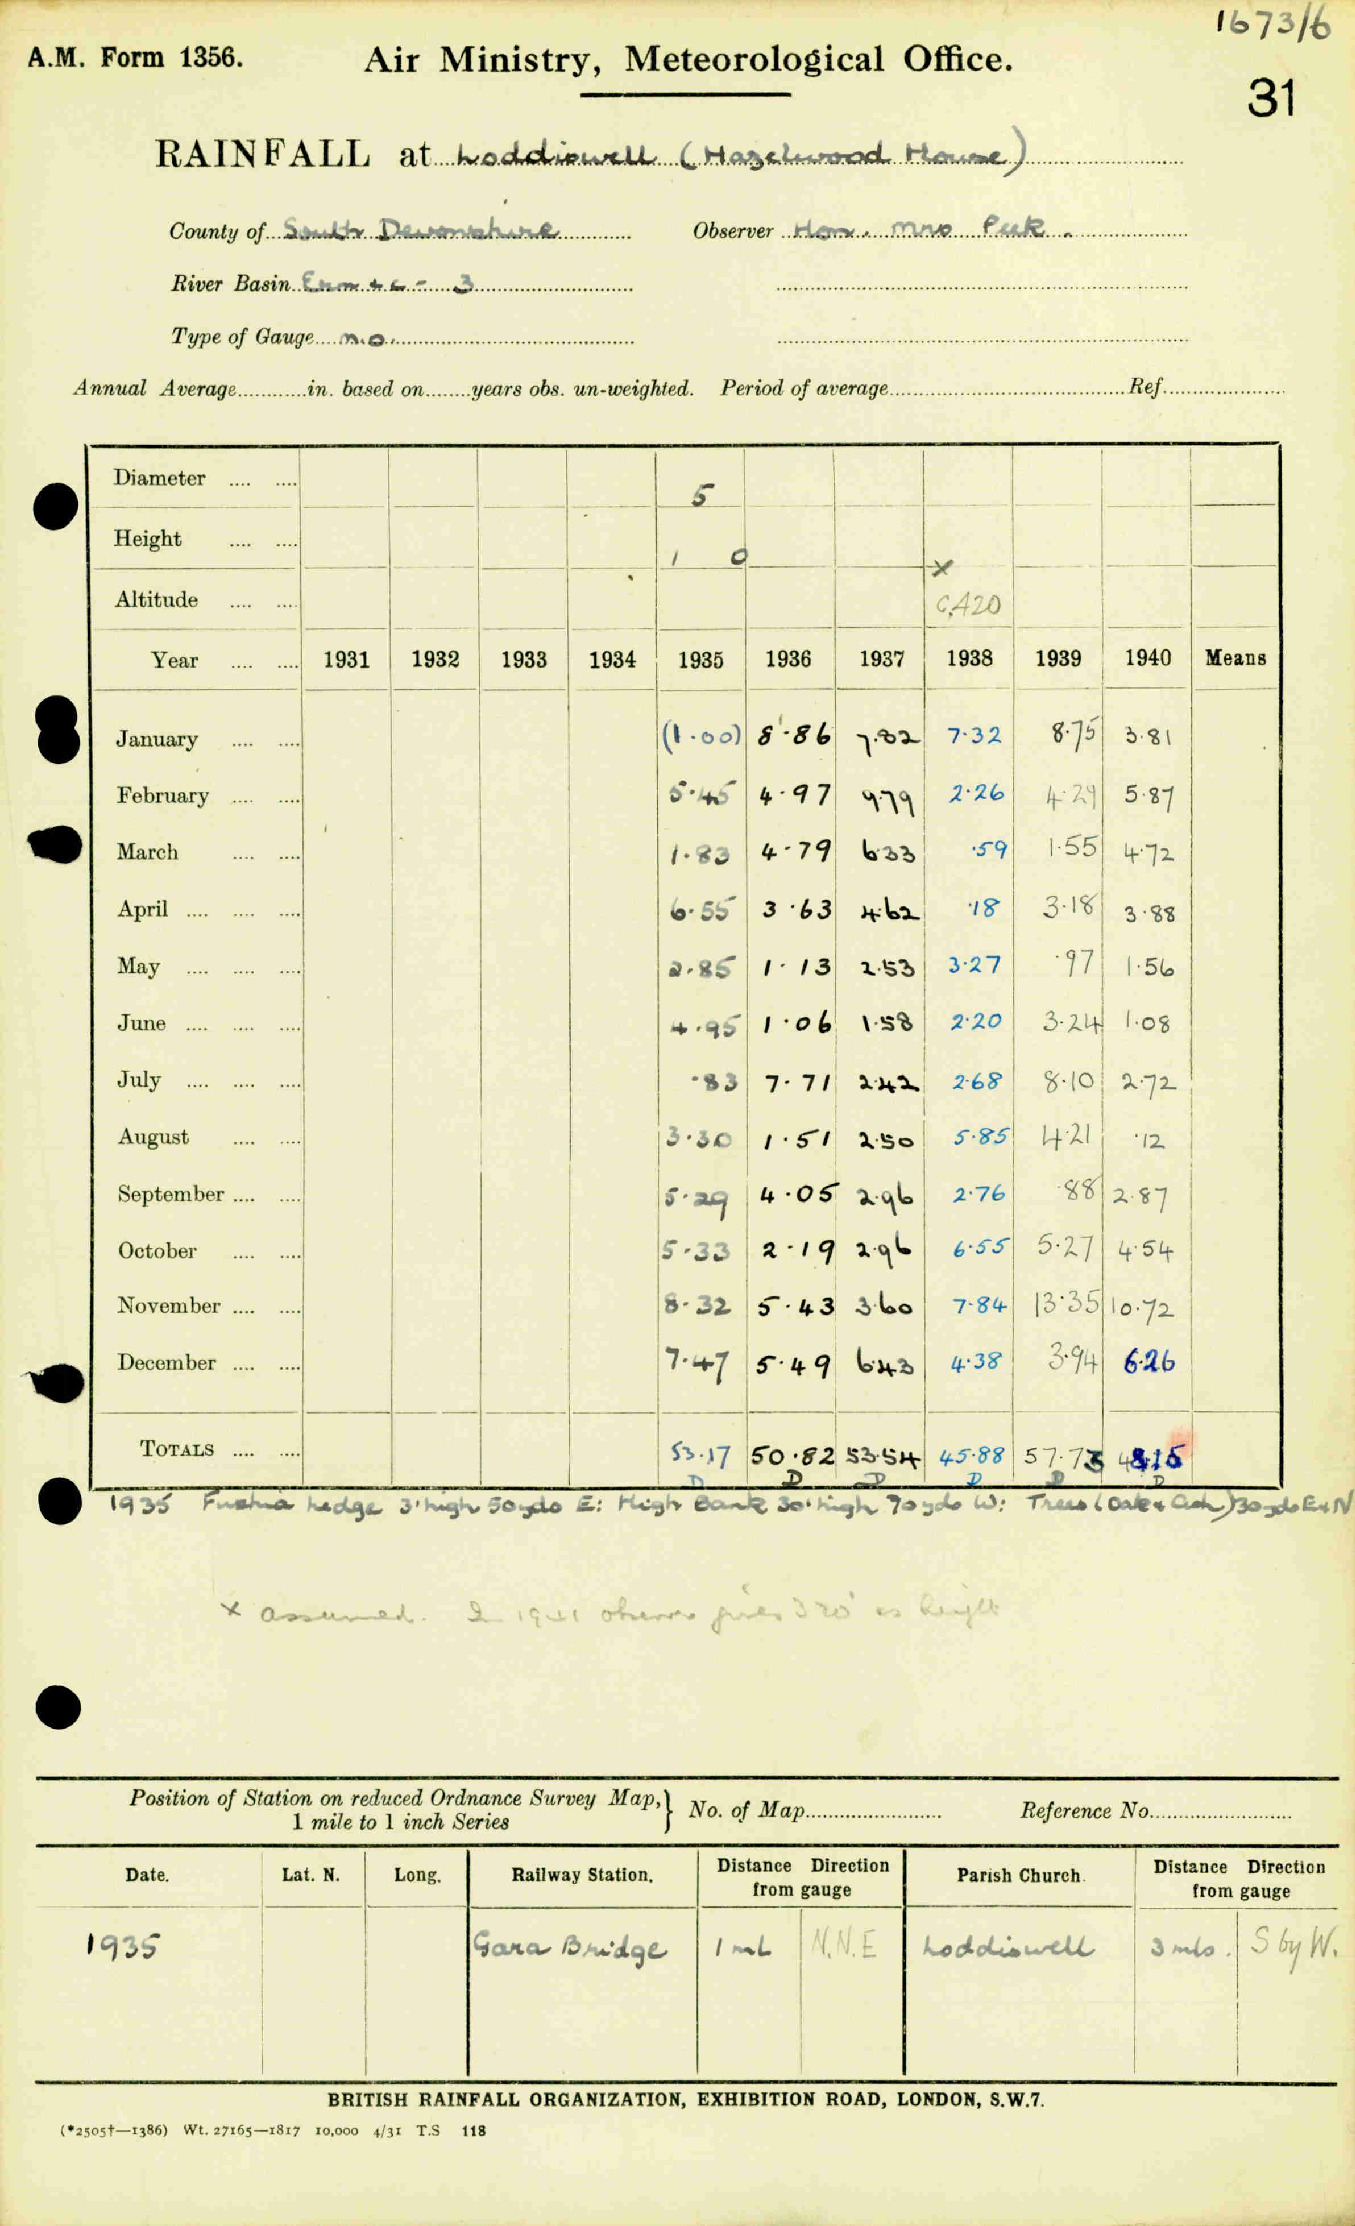 1673/6
A.M. Form 1356. Air Ministry, Meteorological Office.
31
RAINFALL at Loddiswell (Hazelwood House)
County of South Devonshire Observer Hon. Mrs Peek.
River Basin Erm &c - 3
Type of Gauge M.O.
Annual Average............in. based on........years obs. un-weighted. Period of average.................... Ref....................
Diameter .... .... 5
Height .... .... 1 0
x
Altitude .... .... C.420
Year .... .... 1931 1932 1933 1934 1935 1936 1937 1938 1939 1940 Means
January .... .... (1.00) 8.86 7.82 7.32 8.75 3.81
February .... .... 5.45 4.97 9.79 2.26 4.29 5.87
March .... .... 1.83 4.79 6.33 .59 1.55 4.72
April .... .... .... 6.55 3.63 4.62 .18 3.18 3.88
May .... .... .... 2.85 1.13 2.53 3.27 .97 1.56
June .... .... .... 4.95 1.06 1.58 2.20 3.24 1.08
July .... .... .... .83 7.71 2.42 2.68 8.10 2.72
August .... .... 3.30 1.51 2.50 5.85 4.21 .12
September .... .... 5.29 4.05 2.96 2.76 .88 2.87
October .... .... 5.33 2.19 2.96 6.55 5.27 4.54
November .... .... 8.32 5.43 3.60 7.84 13.35 10.72
December .... .... 7.47 5.49 6.43 4.38 3.94 6.26
TOTALS .... .... 53.17 50.82 53.54 45.88 57.73 48.15
D D D D D D
1935 Fushia hedge 3' high 50 yds E: High Bank 30' high 70 yds W: Trees (Oak & Ash) 30 yds E & N
x assumed. In 1941 observer gives 320' as height
Position of Station on reduced Ordnance Survey Map, } No. of Map.................... Reference No....................
1 mile to 1 inch Series
Date. Lat. N. Long. Railway Station. Distance Direction from gauge Parish Church. Distance Direction from gauge
1935 Gara Bridge 1 ml N.N.E Loddiswell 3 mls. S by W.
BRITISH RAINFALL ORGANIZATION, EXHIBITION ROAD, LONDON, S.W.7.
(*2505†—1386) Wt. 27165—1817 10,000 4/31 T.S 118